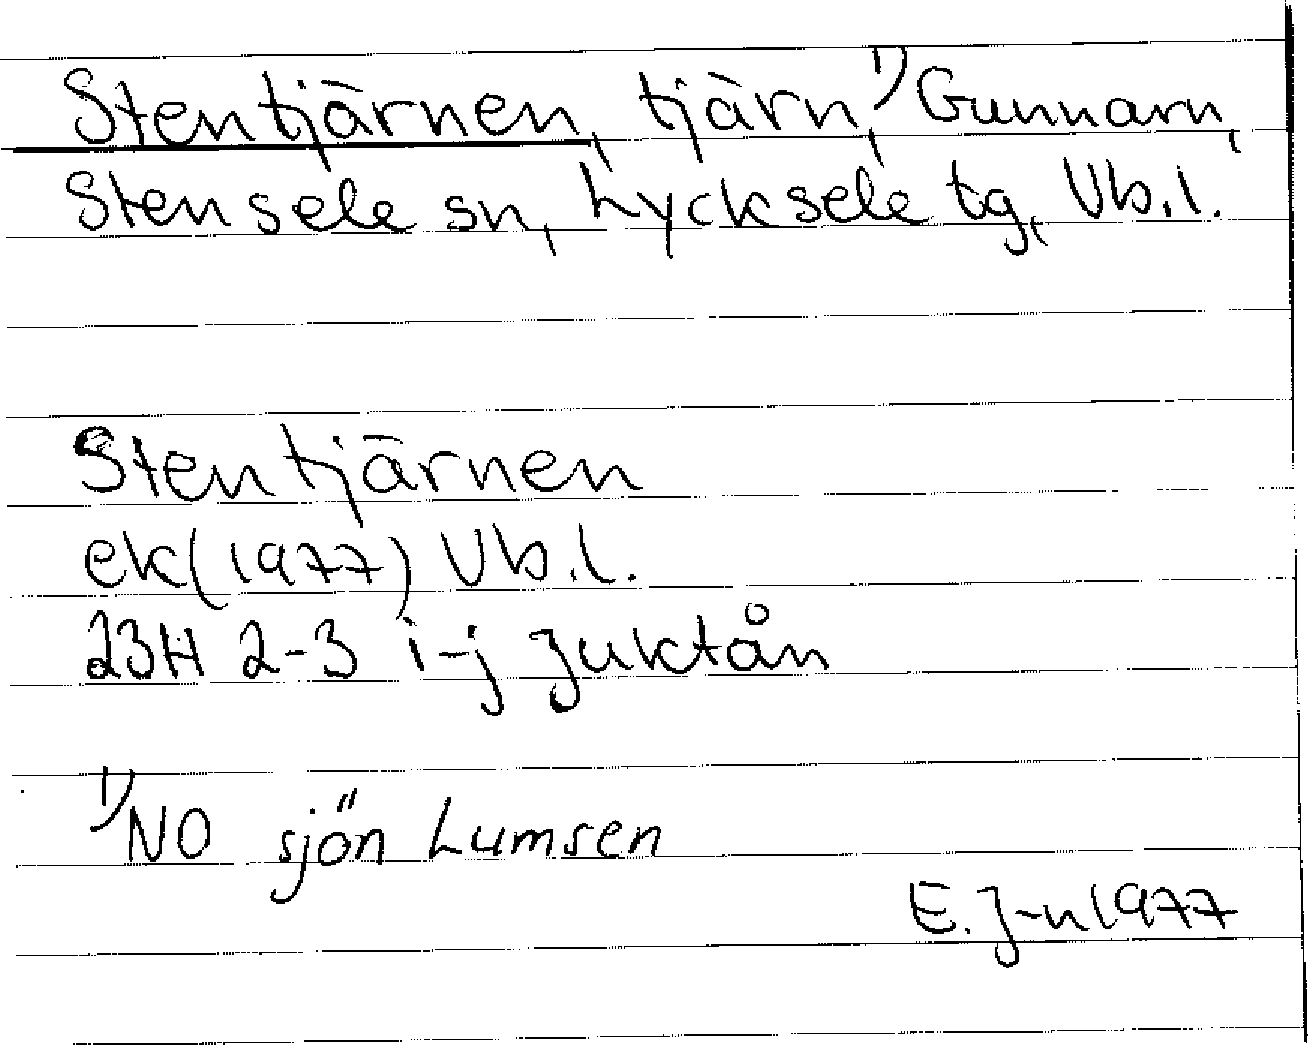 Stentjärnen, tjärn,¹⁾ Gunnarn,
Stensele sn, Lycksele tg, Vb.l.
Stentjärnen
ek(1977) Vb.l.
23H 2-3 i-j Juktån
¹⁾NO sjön Lumsen
E.J-n 1977